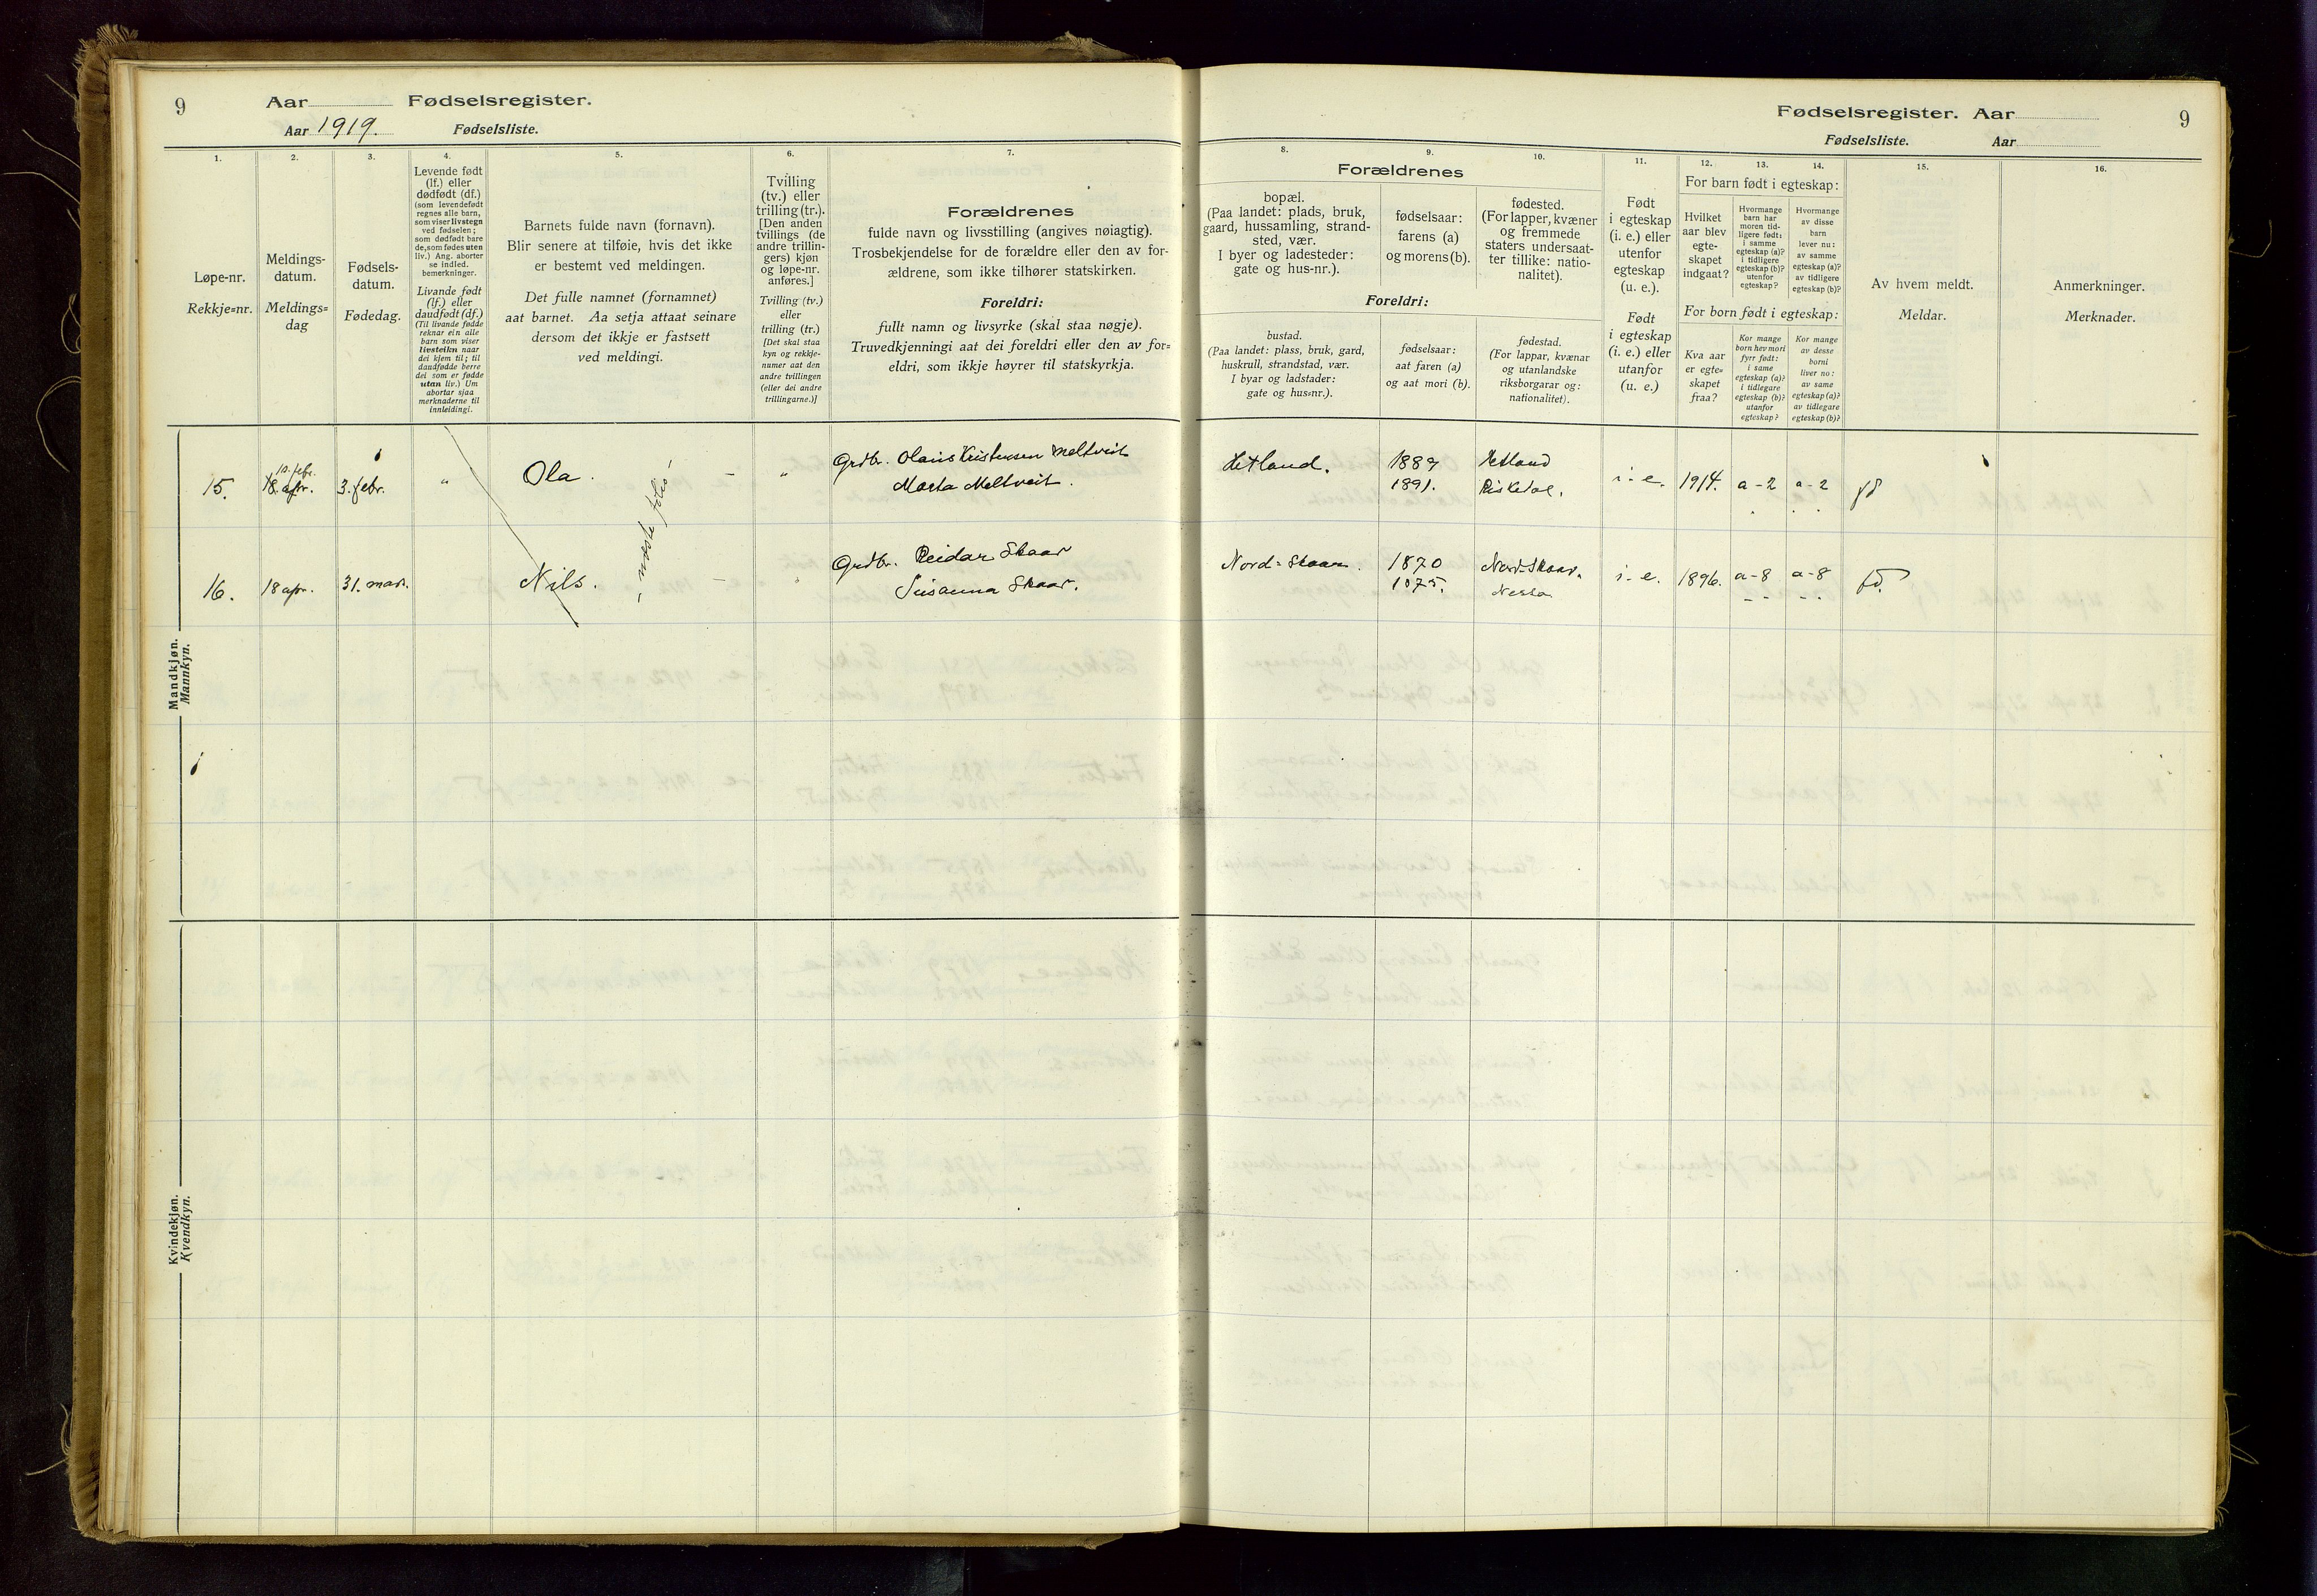 9
Aar Fødselsregister.
Aar 1919. Fødselsliste.
Fødselsregister. Aar
Fødselsliste. Aar
9
1.
Løpe-nr.
Rekkje=nr.
2.
Meldings-
datum.
Meldings=
dag
3.
Fødsels-
datum.
Fødedag.
4.
Levende født
(lf.) eller
dødfødt (df.)
(som levendefødt
regnes alle barn,
som viser livstegn
ved fødselen;
som dødfødt bare
de, som fødes uten
liv.) Ang. aborter
se indled.
bemerkninger.
Livande født
(lf.) eller
daudfødt (df.)
(Til livande fødde
reknar ein alle
barn som viser
livsteikn naar
dei kjem til; til
daudfødde berre
dei som er fødde
utan liv.) Um
abortar sjaa
merknaderne til
innleidingi.
5.
Barnets fulde navn (fornavn).
Blir senere at tilføie, hvis det ikke
er bestemt ved meldingen.
Det fulle namnet (fornamnet)
aat barnet. Aa setja attaat seinare
dersom det ikkje er fastsett
ved meldingi.
6.
Tvilling
(tv.) eller
trilling (tr.).
[Den anden
tvillings (de
andre trillin-
gers) kjøn
og løpe-nr.
anføres.]
Tvilling (tv.)
eller
trilling (tr.)
[Det skal staa
kyn og rekkje-
numer aat den
andre tvillingen
(eller dei andre
trillingarne.)]
7.
Forældrenes
fulde navn og livsstilling (angives nøiagtig).
Trosbekjendelse for de forældre eller den av for-
ældrene, som ikke tilhører statskirken.
Foreldri:
fullt namn og livsyrke (skal staa nøgje).
Truvedkjenningi aat dei foreldri eller den av for=
eldri, som ikkje høyrer til statskyrkja.
Forældrenes
8.
bopæl.
(Paa landet: plads, bruk,
gaard, hussamling, strand-
sted, vær.
I byer og ladesteder:
gate og hus-nr.).
9.
fødselsaar:
farens (a)
og morens (b).
10.
fødested.
(For lapper, kvæner
og fremmede
staters undersaat-
ter tillike: natio-
nalitet).
Foreldri:
bustad.
(Paa landet: plass, bruk, gard,
huskrull, strandstad, vær.
I byar og ladstader:
gate og hus=nr.).
fødselsaar:
aat faren (a)
og aat mori (b).
fødestad.
(For lappar, kvænar
og utanlandske
riksborgarar og:
nationalitet).
11.
Født
i egteskap
(i. e.) eller
utenfor
egteskap
(u. e.).
Født
i egteskap
(i. e.) eller
utanfor
(u. e.)
12.
13.
14.
For barn født i egteskap:
Hvilket
aar blev
egte-
skapet
indgaat?
Hvormange
barn har
moren tid-
ligere født:
i samme
egteskap (a)?
i tidligere
egteskap (b)?
utenfor
egteskap?
Hvormange
av disse
barn
lever nu:
av samme
egteskap (a)?
av tidligere
egteskap (b)?
For born født i egteskap:
Kva aar
er egte=
skapet
fraa?
Kor mange
born hev mori
fyrr født:
i same
egteskap (a)?
i tidlegare
egteskap (b)?
utanfor
egteskap?
Kor mange
av desse
borni
liver no:
av same
egteskap (a)?
av tidlegare
egteskap (b)?
15.
Av hvem meldt.
Meldar.
16.
Anmerkninger.
Merknader.
Mandkjøn.
Mannkyn.
15. 18. apr. 3. febr. " Ola. — " Grdbr. Olaus Kristensen Meltveit Hetland. 1889 Hetland i-e. 1914. a-2 a-2 fd
Marta Meltveit. 1891. Riskedal.
- næste folio -
16. 18 apr. 31. mars. Nils. — " Grdbr. Reidar Skaar Nord=Skaar. 1870 Nord-Skaar. i-e. 1896. a-8 a-8 fd.
Susanna Skaar. 1875. Nessa
Kvindekjøn.
Kvendkyn.